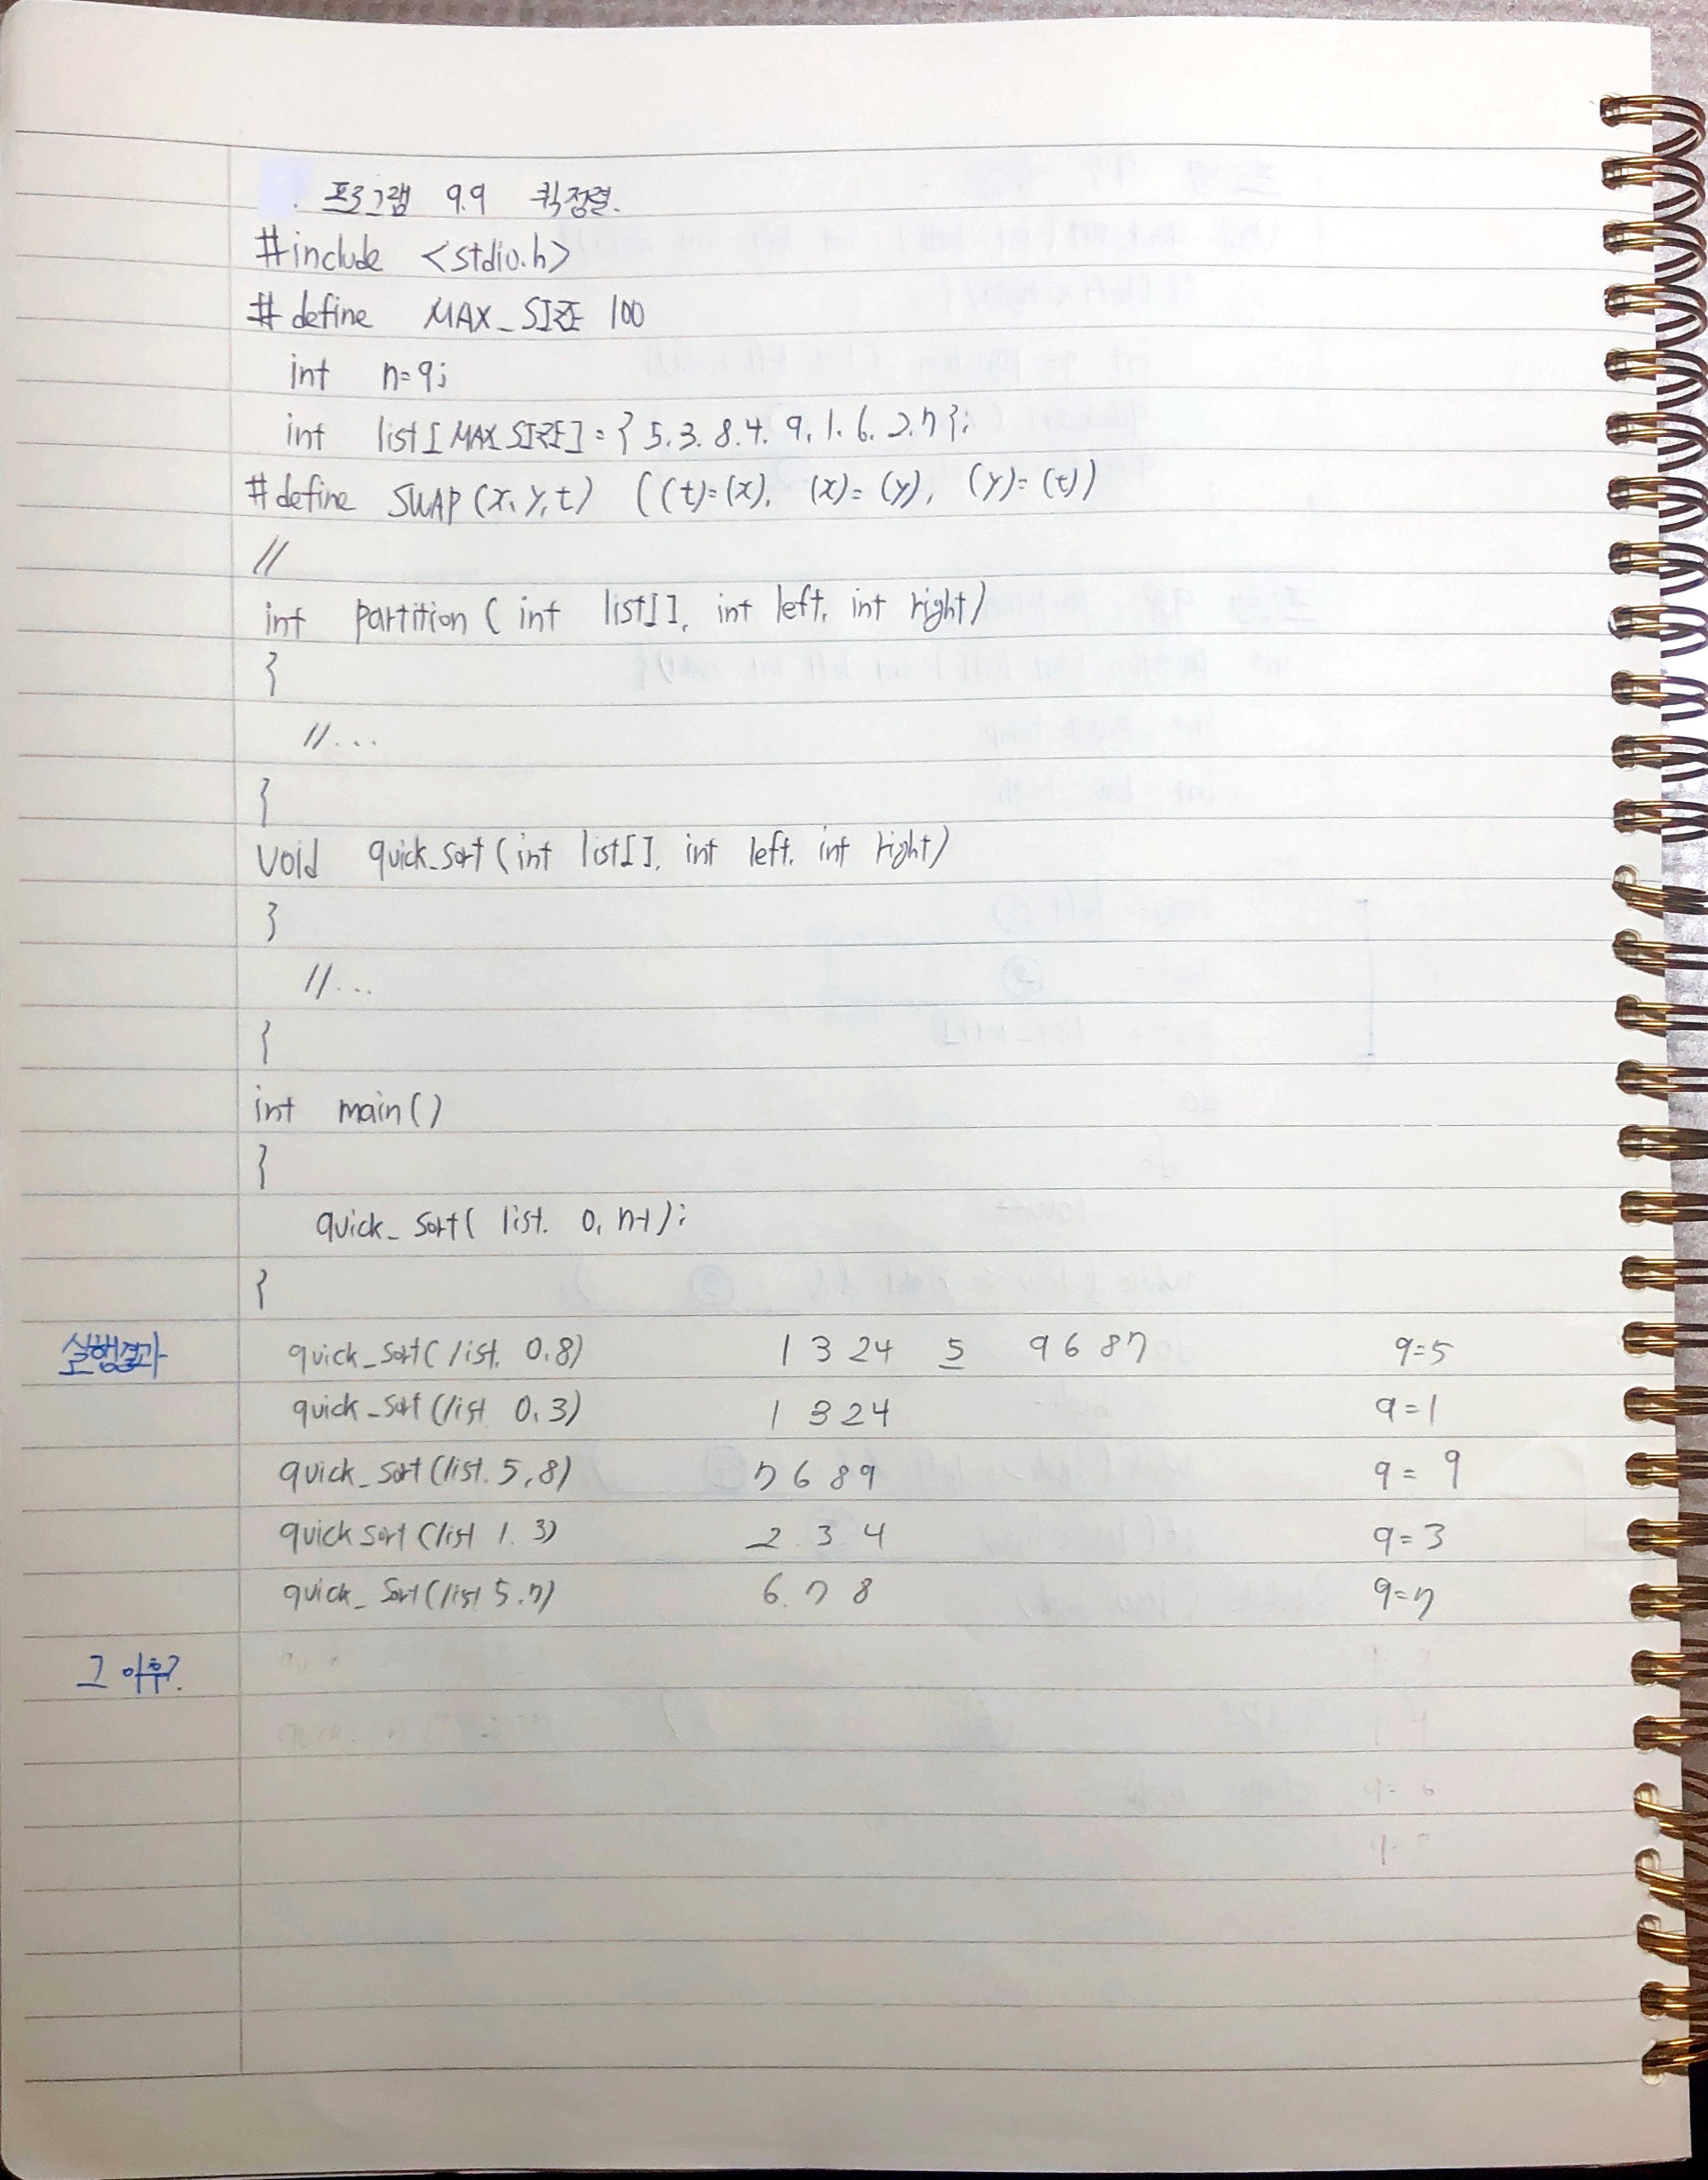 프로그램 9.9 퀵정렬.
#include <stdio.h>
#define MAX_SIZE 100
int n=9;
int list[MAX_SIZE] = { 5, 3, 8, 4, 9, 1, 6, 2, 7 };
#define SWAP(x, y, t) ((t)=(x), (x)=(y), (y)=(t))
//
int partition ( int list[], int left, int right)
{
//...
}
void quick_sort (int list[], int left, int right)
}
//...
{
int main()
}
quick_sort( list, 0, n-1);
{
실행결과 quick_sort( list, 0.8) 1 3 2 4 5 9 6 8 7 q=5
quick_sort (list 0.3) 1 3 2 4 q=1
quick_sort (list. 5,8) 7 6 8 9 q= 9
quick sort (list 1. 3) 2 3 4 q=3
quick_sort (list 5.7) 6. 7 8 q=7
그 이후?